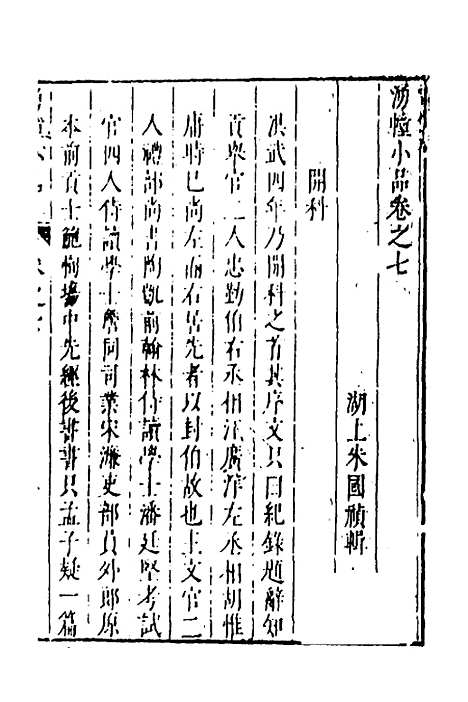 湧幢小品卷之七
湖上朱國禎輯
開科
洪武四年乃開科之首其序文只曰紀錄題辭知
貢舉官二人忠勤伯右丞相汪廣洋左丞相胡惟
庸時已尚左而右居先者以封伯故也主文官二
人禮部尚書陶凱前翰林侍讀學士潘廷堅考試
官四人侍讀學士詹同司業宋濂吏部員外郎原
本前貢士鮑恂場中先經後書書只孟子疑一篇